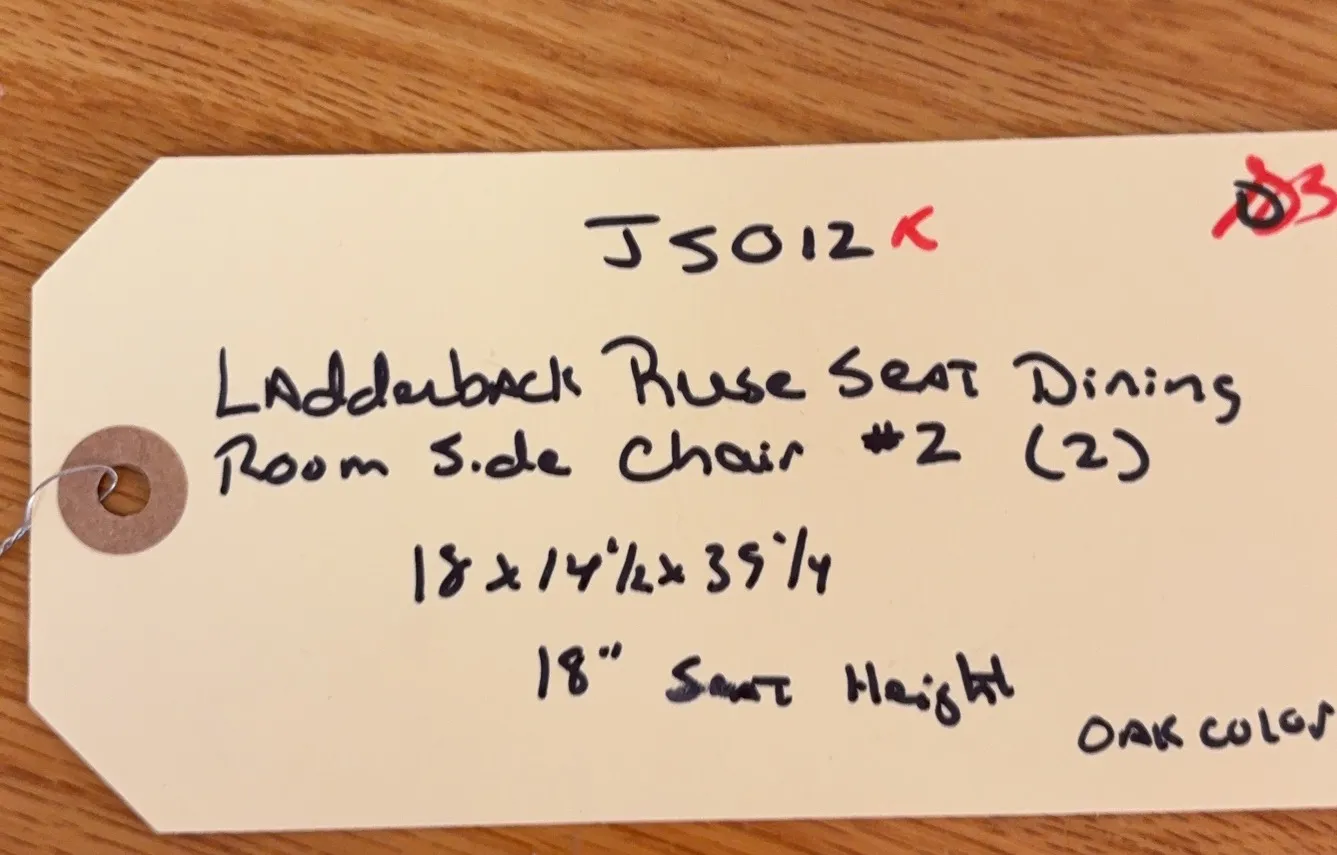 JS012K
D3
Ladderback Ruse Seat Dining
Room Side Chair #2 (2)
18 x 14 1/2 x 39 1/4
18" Seat Height
OAK COLOR